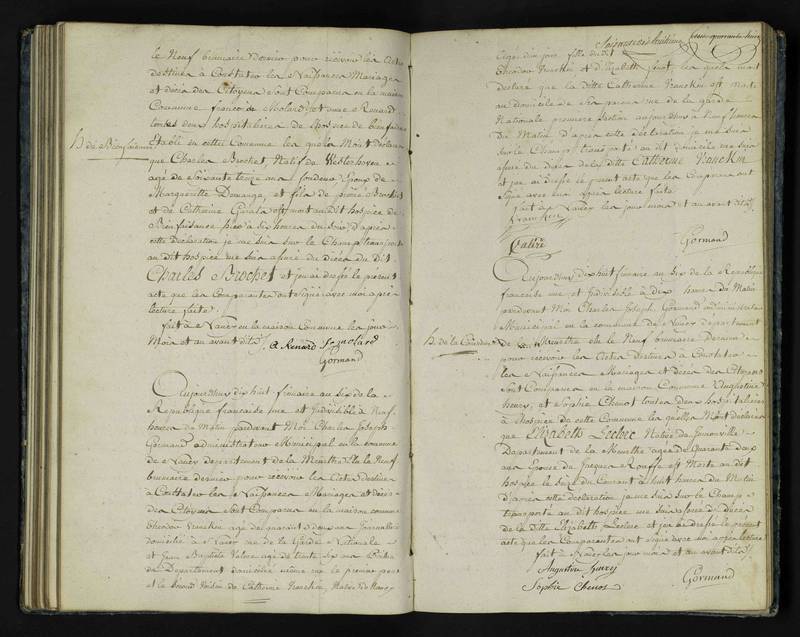 le Neuf brumaire dernier pour recevoir les Actes
destinés à Constater les Naissances Mariages
et décès des Citoyens sont Comparus en la maison
Commune françoise Molard et anne Renard
toutes deux hospitalieres de l'hospice de bienfaisance
H. de Bienfaisance
Etablie en cette Commune les quels M'ont déclaré
que Charles Brochet Natif de
agé de Soixante treize ans fondeur Epoux de
Marguerite Domange, et fils de pierre Brochet
et de Catherine est mort audit hospice de
Bienfaisance hier à six heures du soir d'après
cette déclaration je me suis sur le Champ transporté
au dit hospice me suis assuré du décès du dit
Charles Brochet et j'en ai dressé le présent
acte que les Comparantes ont signé avec moi après
lecture faite
fait à Nancy en la maison Commune les jour
Mois et an avant dits
A Renard Molard
Gormand
Aujourd'hui dix huit frimaire an six de la
République française une et Indivisible à Neuf
heures du Matin pardevant Moi Charles Joseph
Gormand administrateur Municipal en la commune
de Nancy departement de la Meurthe Elu le Neuf
brumaire dernier pour recevoir les Actes destinés
à Constater les Naissances Mariages et décès
des Citoyens sont Comparus en la maison commune
Theodor Vranckin agé de quarante deux ans Journallier
domicilié à Nancy rue de la Garde Nationale
et Jean Baptiste agé de trente six ans
du Departement domicilié même rue le premier pere
et le second Voisin de Catherine Vranckin, Native de Nancy
Soixante et huitieme
Cent quarante huit
agée d'un jour fille du dit
Theodor Vranckin et d'Elizabeth les quels m'ont
declaré que la ditte Catherine Vranckin est morte
au domicile de ses pere rue de la garde
Nationale premiere section aujourd'hui à Neuf heures
du Matin d'après cette déclaration je me suis
sur le Champ transporté au dit domicile me suis
assuré du Décès de la ditte Catherine Vranckin
et j'en ai dressé le présent acte que les Comparans ont
signé avec moi après lecture faite
fait à Nancy les jour mois et an avant dits
Vranckin
Gormand
Aujourd'hui dix huit frimaire an Six de la République
française une et Indivisible à dix heures du Matin
pardevant Moi Charles Joseph Gormand administrateur
Municipal en la commune de Nancy departement
de la Meurthe élu le Neuf brumaire Dernier
H. de la
pour recevoir les Actes destinés à Constater
les Naissances Mariages et décès des Citoyens
sont Comparues en la maison Commune Augustine
et Sophie Chenot toutes deux hospitalieres
à l'hospice de cette Commune les quelles M'ont déclaré
que Elizabeth Leclerc Native de
Departement de la Meurthe agée de Quarante deux
ans Epouse de Jacques est Morte au dit
hospice le Seize du Courant à huit heures du Matin
D'après cette déclaration je me suis sur le Champ
transporté au dit hospice me suis assuré du Décès
de la Ditte Elizabeth Leclerc et j'en ai dressé le présent
acte que les Comparantes ont signé avec moi après lecture
fait à Nancy les jour mois et an avant dits
Augustine
Sophie Chenot
Gormand